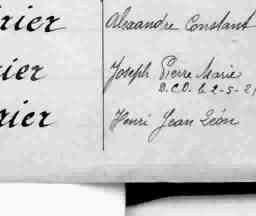 rier Alexandre Constant
rier Joseph Pierre Marie
D.C.D. le 2-5-21
rier Henri Jean Léon